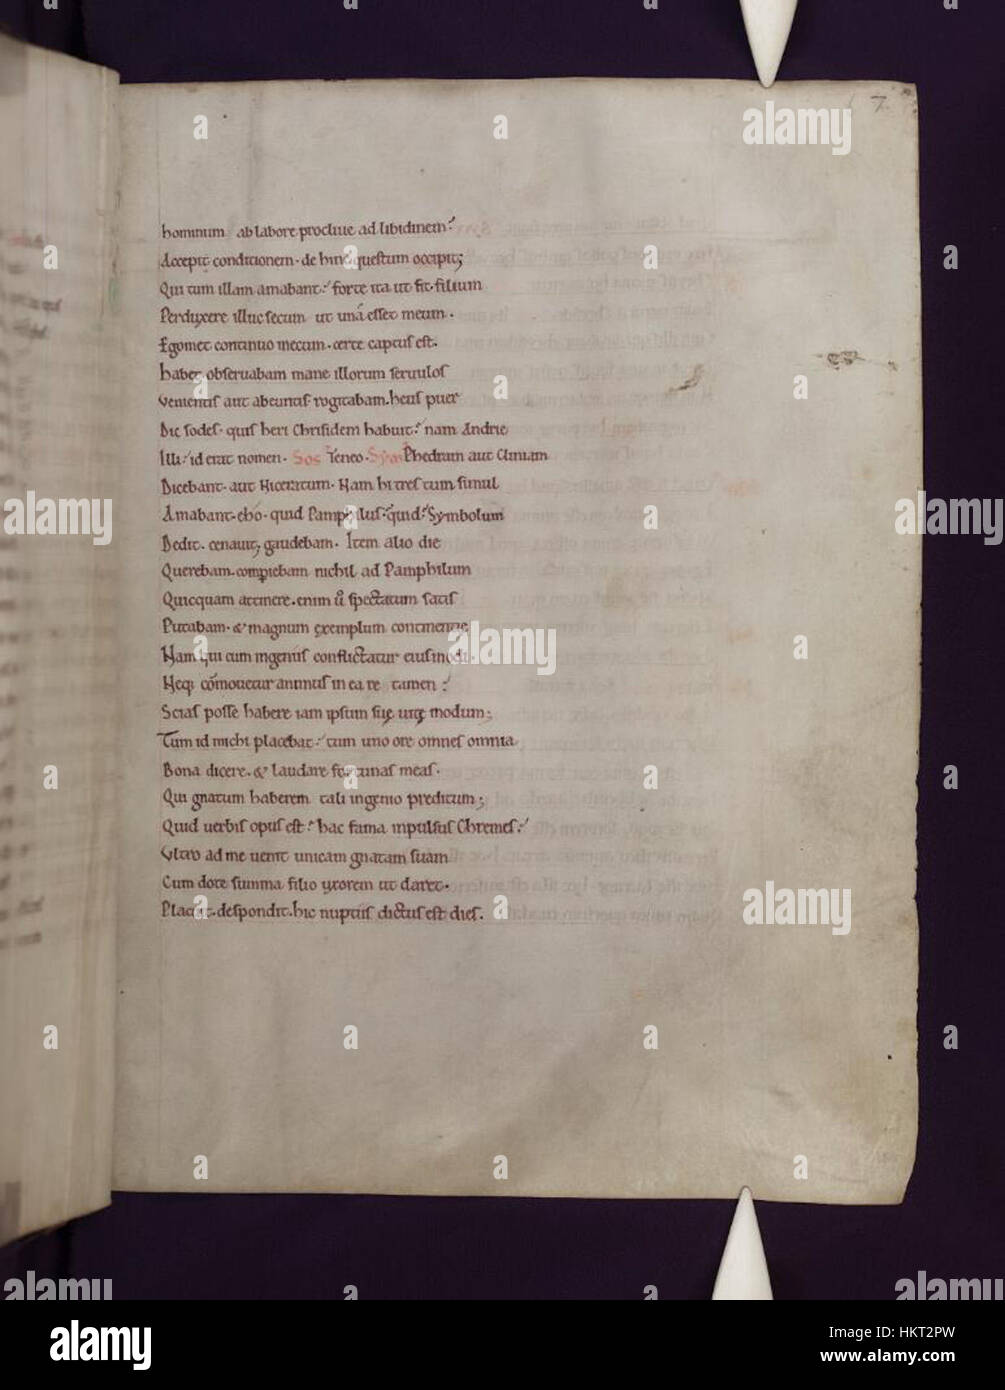 7
hominum ab labore procliue ad libidinem
Accepit condicionem. de hinc questum occipit;
Qui tum illam amabant: forte ita ut fit. filium
Perduxere illuc secum ut unā esset meum.
Egomet continuo mecum. certe captus est.
habet obseruabam mane illorum seruulos
Venientis aut abeuntis rogitabam. heus puer
Dic sodes. quis heri Chrisidem habuit? nam Andrie
Illi id erat nomen. Sos Teneo. Sym Phedrum aut Cliniam
Dicebant. aut Niceratum. Nam hi tres tum simul
Amabant. eho. quid Pamphilus? quid? Symbolum
Dedit. cenauit; gaudebam. Item alio die
Querebam. comp̄iebam nichil ad Pamphilum
Quicquam attinere. enim ū spectatum satis
Putabam. & magnum exemplum continentie
Nam qui cum ingeniis conflictatur eiusmodi.
Neq; cōmouetur animus in ea re tamen:
Scias posse habere iam ipsum suę uitę modum;
Tum id michi placebat: tum uno ore omnes omnia
Bona dicere. & laudare fortunas meas.
Qui gnatum haberem tali ingenio preditum;
Quid uerbis opus est? hac fama inpulsus Chremes:
Vltro ad me uenit unicam gnatam suam
Cum dote summa filio uxorem ut daret.
Placuit. despondit. hic nuptiis dictus est dies.
alamy
Image ID: HKT2PW
www.alamy.com